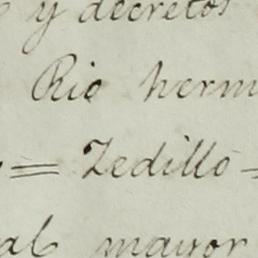 y decretos
Rio herm
= Zedillo =
al mayor